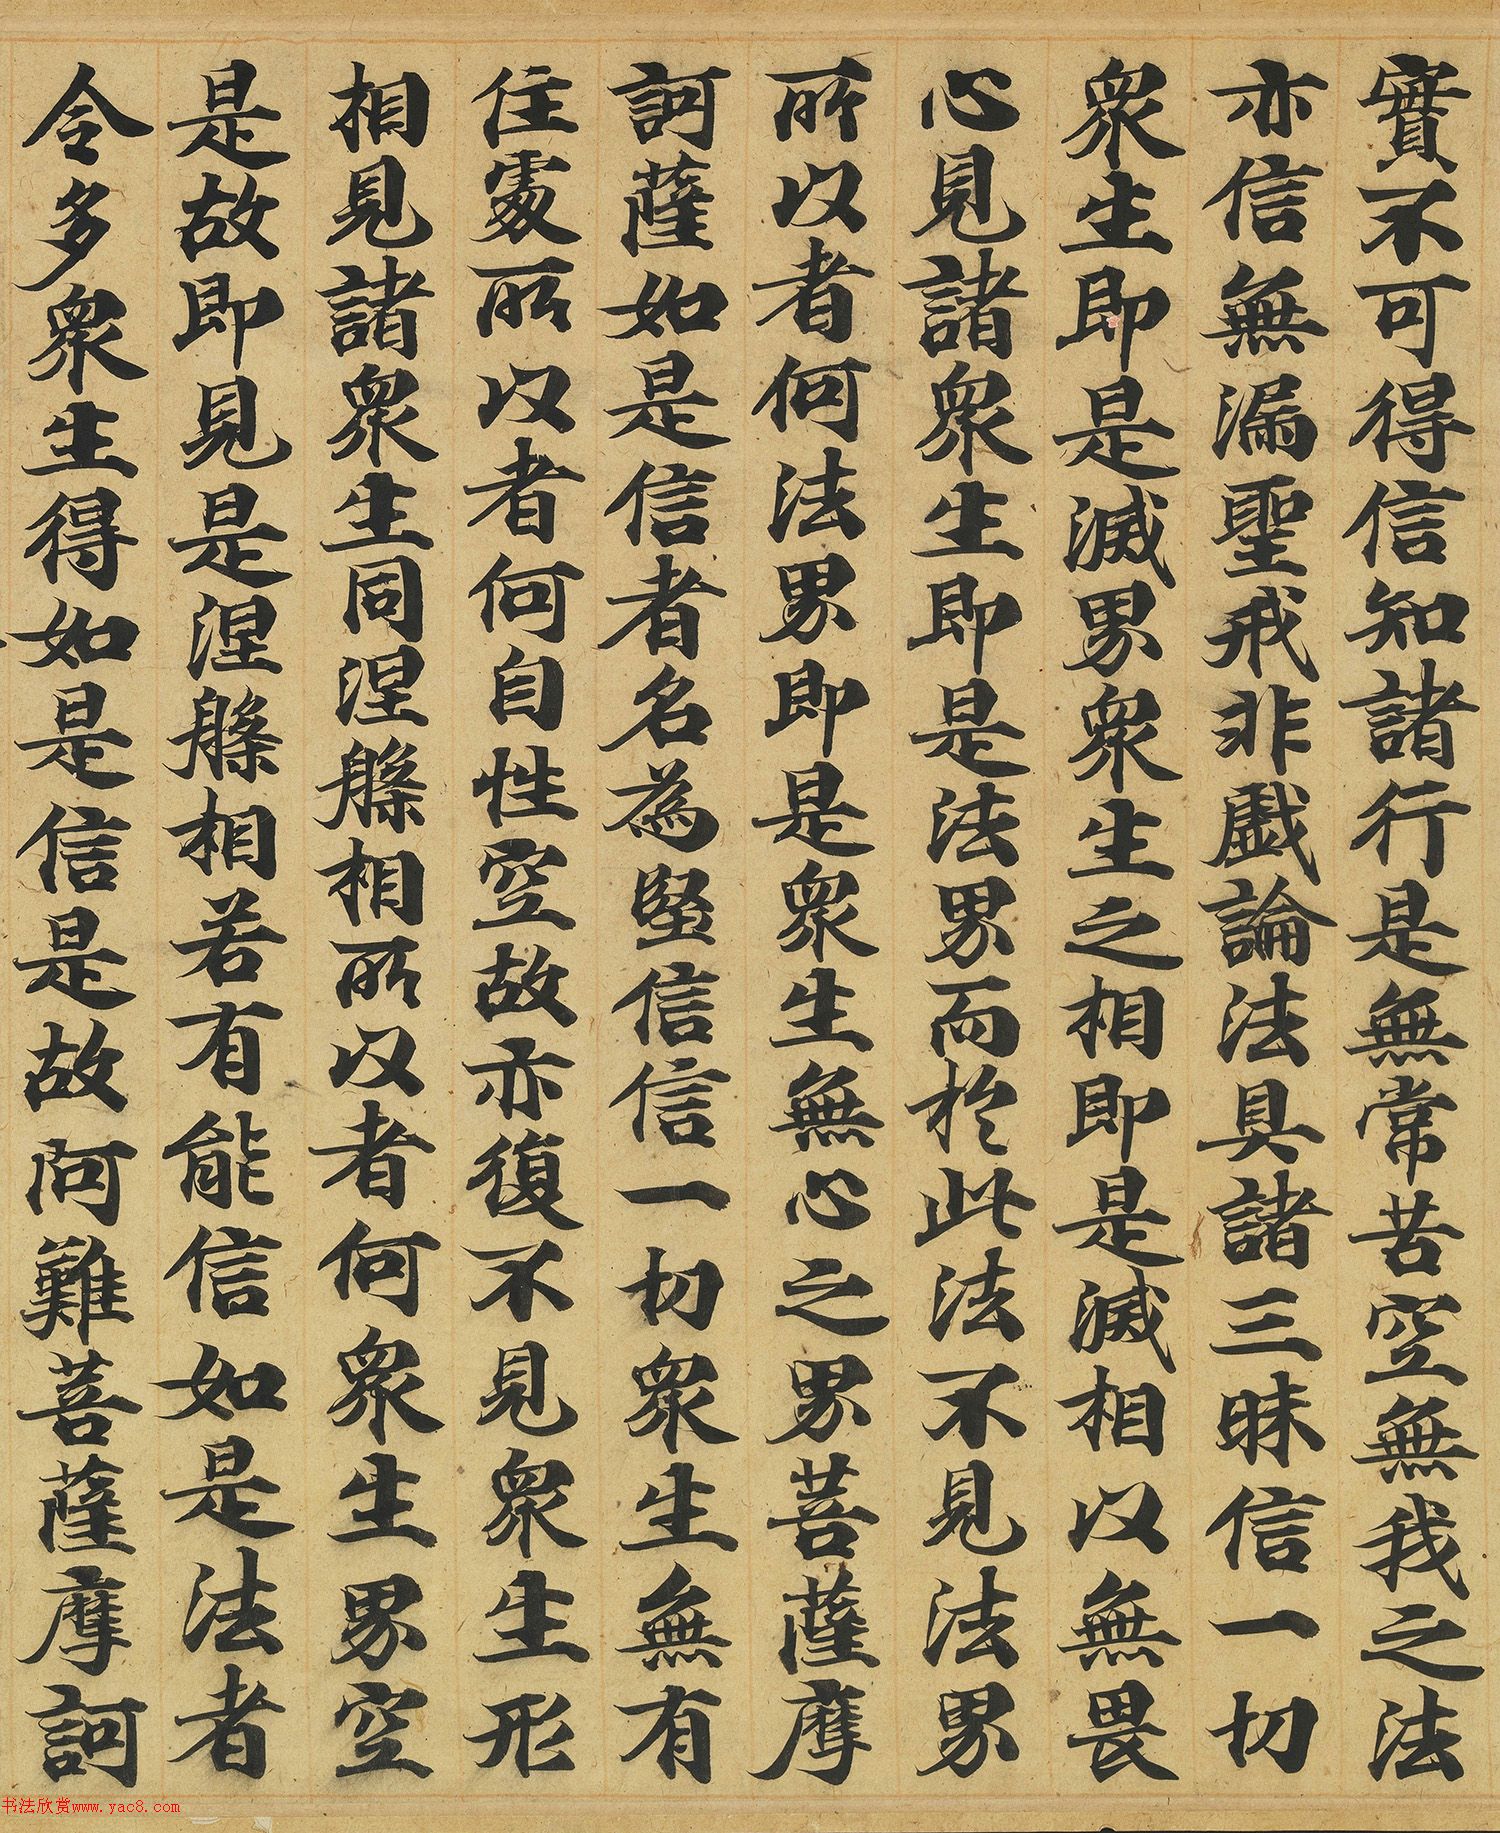 實不可得信知諸行是無常苦空無我之法
亦信無漏聖戒非戲論法具諸三昧信一切
眾生即是滅界眾生之相即是滅相以無畏
心見諸眾生即是法界而於此法不見法界
所以者何法界即是眾生無心之界菩薩摩
訶薩如是信者名為堅信信一切眾生無有
住處所以者何自性空故亦復不見眾生形
相見諸眾生同涅槃相所以者何眾生界空
是故即見是涅槃相若有能信如是法者
令多眾生得如是信是故阿難菩薩摩訶
书法欣赏www.yac8.com